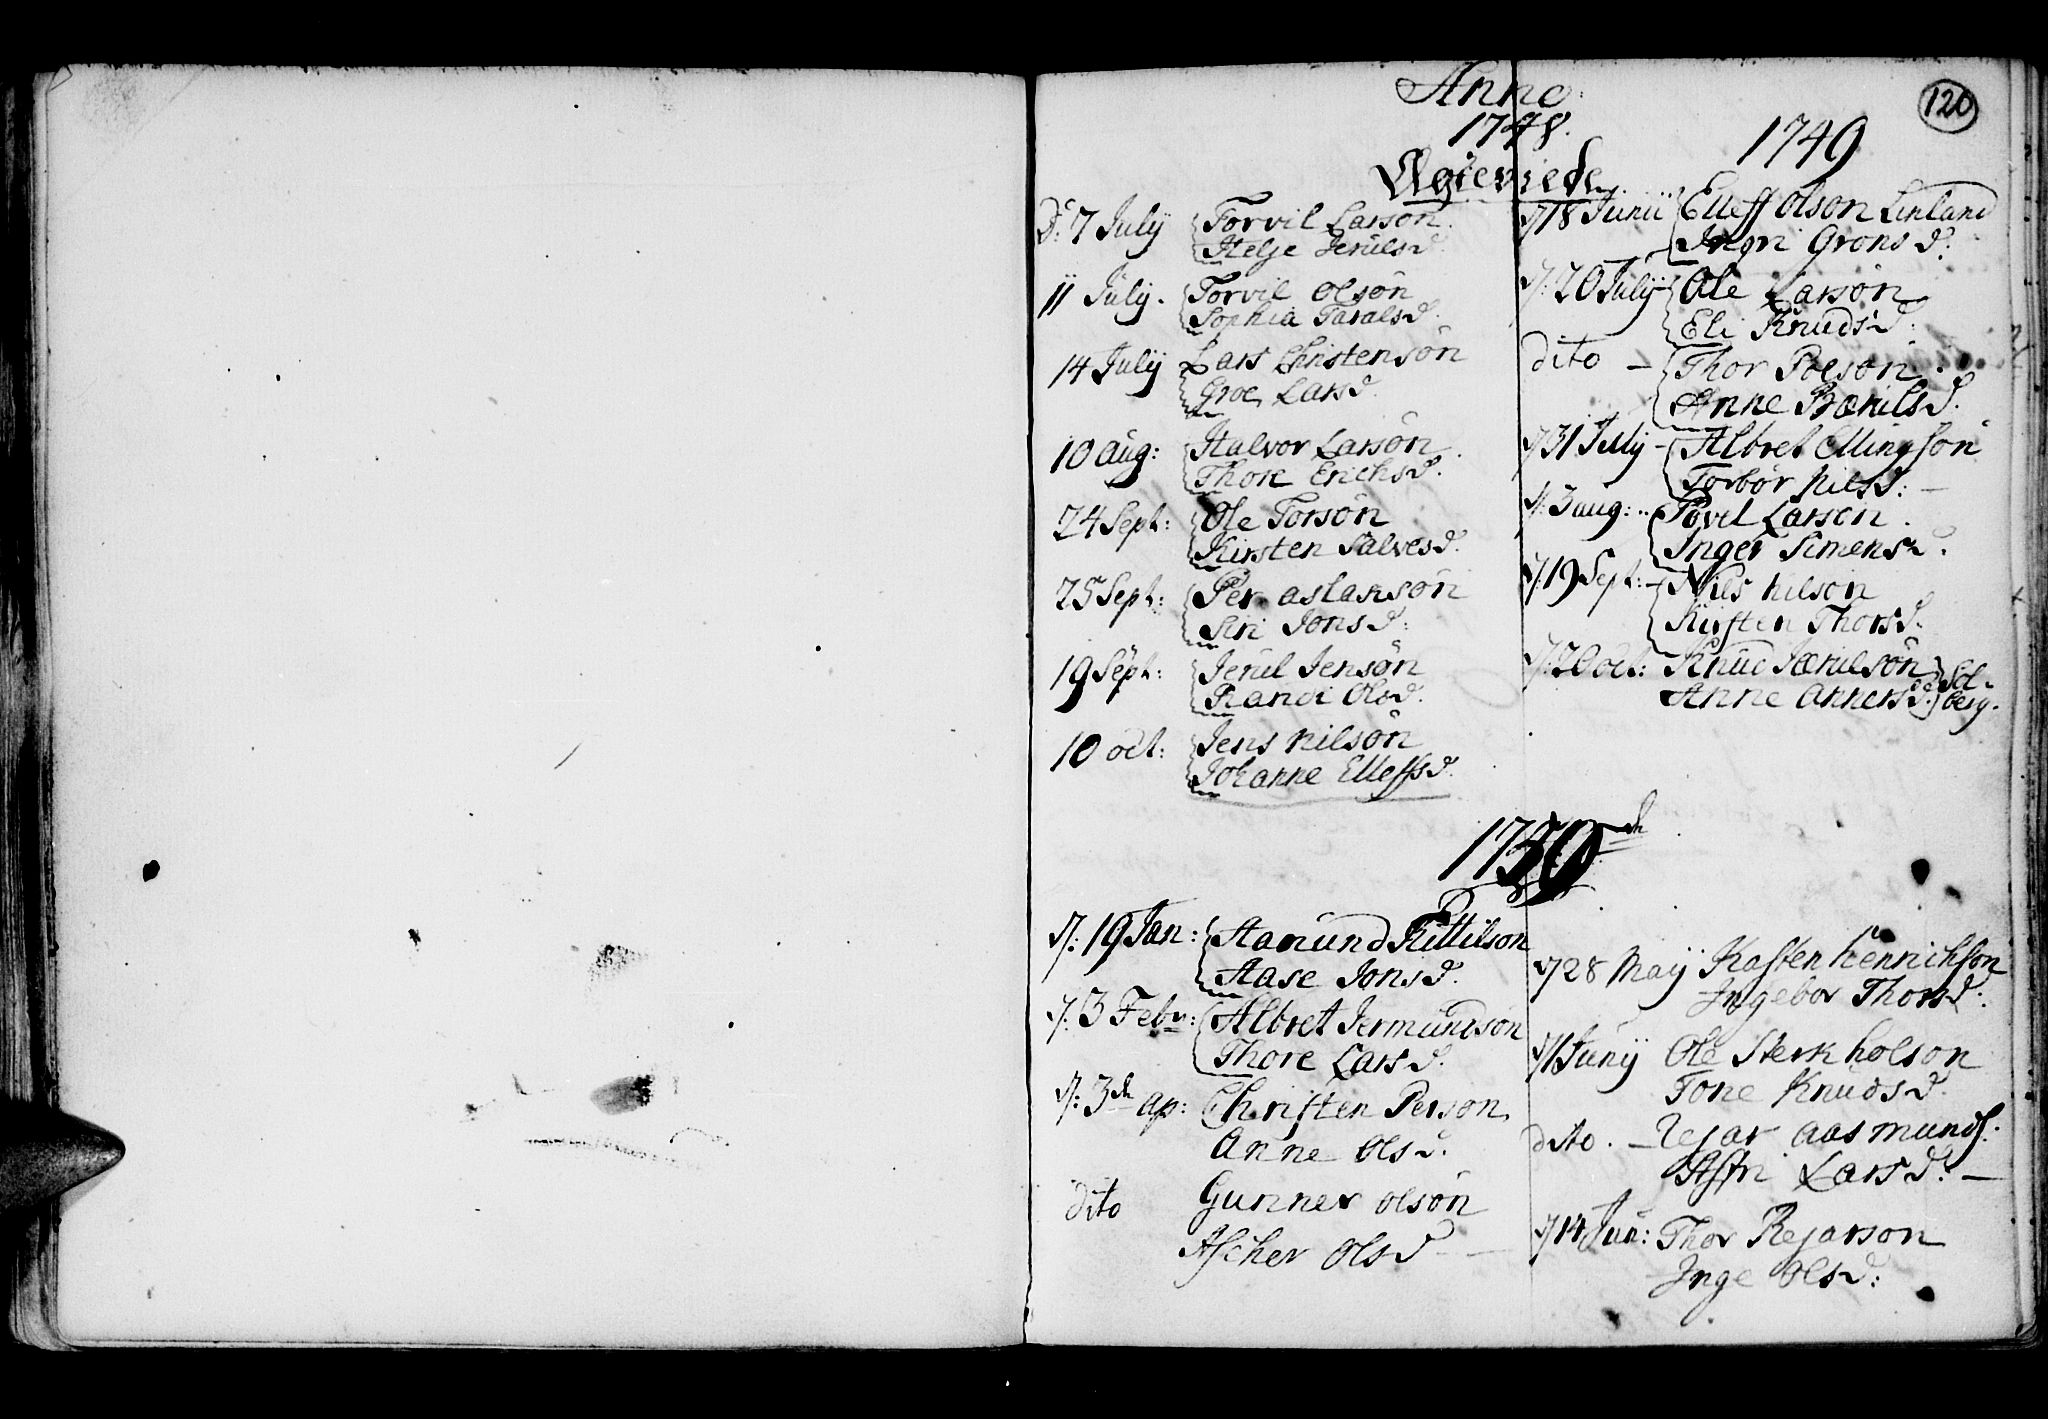 120
Anno
1748.
1749
Ægteviede
D: 7 July Torvil Larsøn.
Helje Jerulsd.
11 July. Torvil Olsøn
Sophia Taralsd.
14 July Lars Christensøn
Groe Larsd.
10 aug: Halvor Larsøn
Thore Erichsd.
24 Sept: Ole Torsøn
Kirsten Salvesd.
25 Sept: Per aslaksøn
Siri Jonsd:
19 Sept: Jerul Jensøn
Randi Olsd.
10 oct: Jens Nilsøn
Johanne Elleffsd.
18 Junii Elleff Olson Linland
Ingri Gronsd.
20 July Ole Larsøn
Eli Knudsd.
dito – Thor Poelsøn.
Anne Bærulsd.
31 July – Albret Ellingsøn
Torbør Nilsd: –
3 aug: Povel Larsøn.
Inger Simensd.
19 Sept: – Nils Nilsøn
Kirsten Thorsd.
20 oct: Knud Særulsøn Sol-
Anne Annersd. berg.
1750
19 Jan: Aamund Kittilson
Aase Jonsd.
3 Febr: Albret Jermundson
Thore Larsd.
3 ap: Christen Person
Anne Olsd.
dito Gunner Olsøn
Ascher Olsd –
28 Maÿ Kasten Henrichson
Ingebor Thorsd:
1 Junÿ Ole Sterkholson
Tone Knudsd.
dito. – Rejar Aasmunds.
Assri Larsd. –
14 Jun: Thor Rejarson
Inge Olsd: